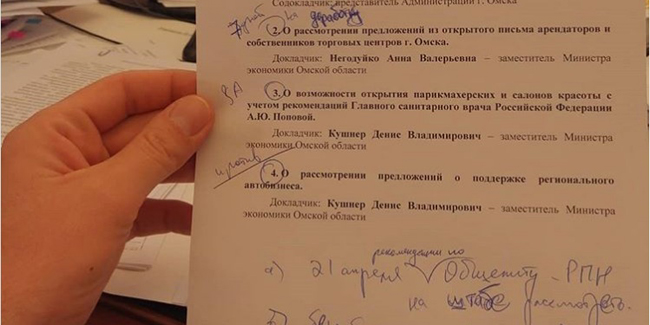 Содокладчик: представитель Администрации г. Омска
на доработку
2. О рассмотрении предложений из открытого письма арендаторов и
собственников торговых центров г. Омска.
Докладчик: Негодуйко Анна Валерьевна – заместитель Министра
экономики Омской области
ЗА
3. О возможности открытия парикмахерских и салонов красоты с
учетом рекомендаций Главного санитарного врача Российской Федерации
А.Ю. Поповой.
Докладчик: Кушнер Денис Владимирович – заместитель Министра
экономики Омской области
против
4. О рассмотрении предложений о поддержке регионального
автобизнеса.
Докладчик: Кушнер Денис Владимирович – заместитель Министра
экономики Омской области
рекомендации по
а) 21 апреля Общепиту - РПН
на штабе рассмотреть.